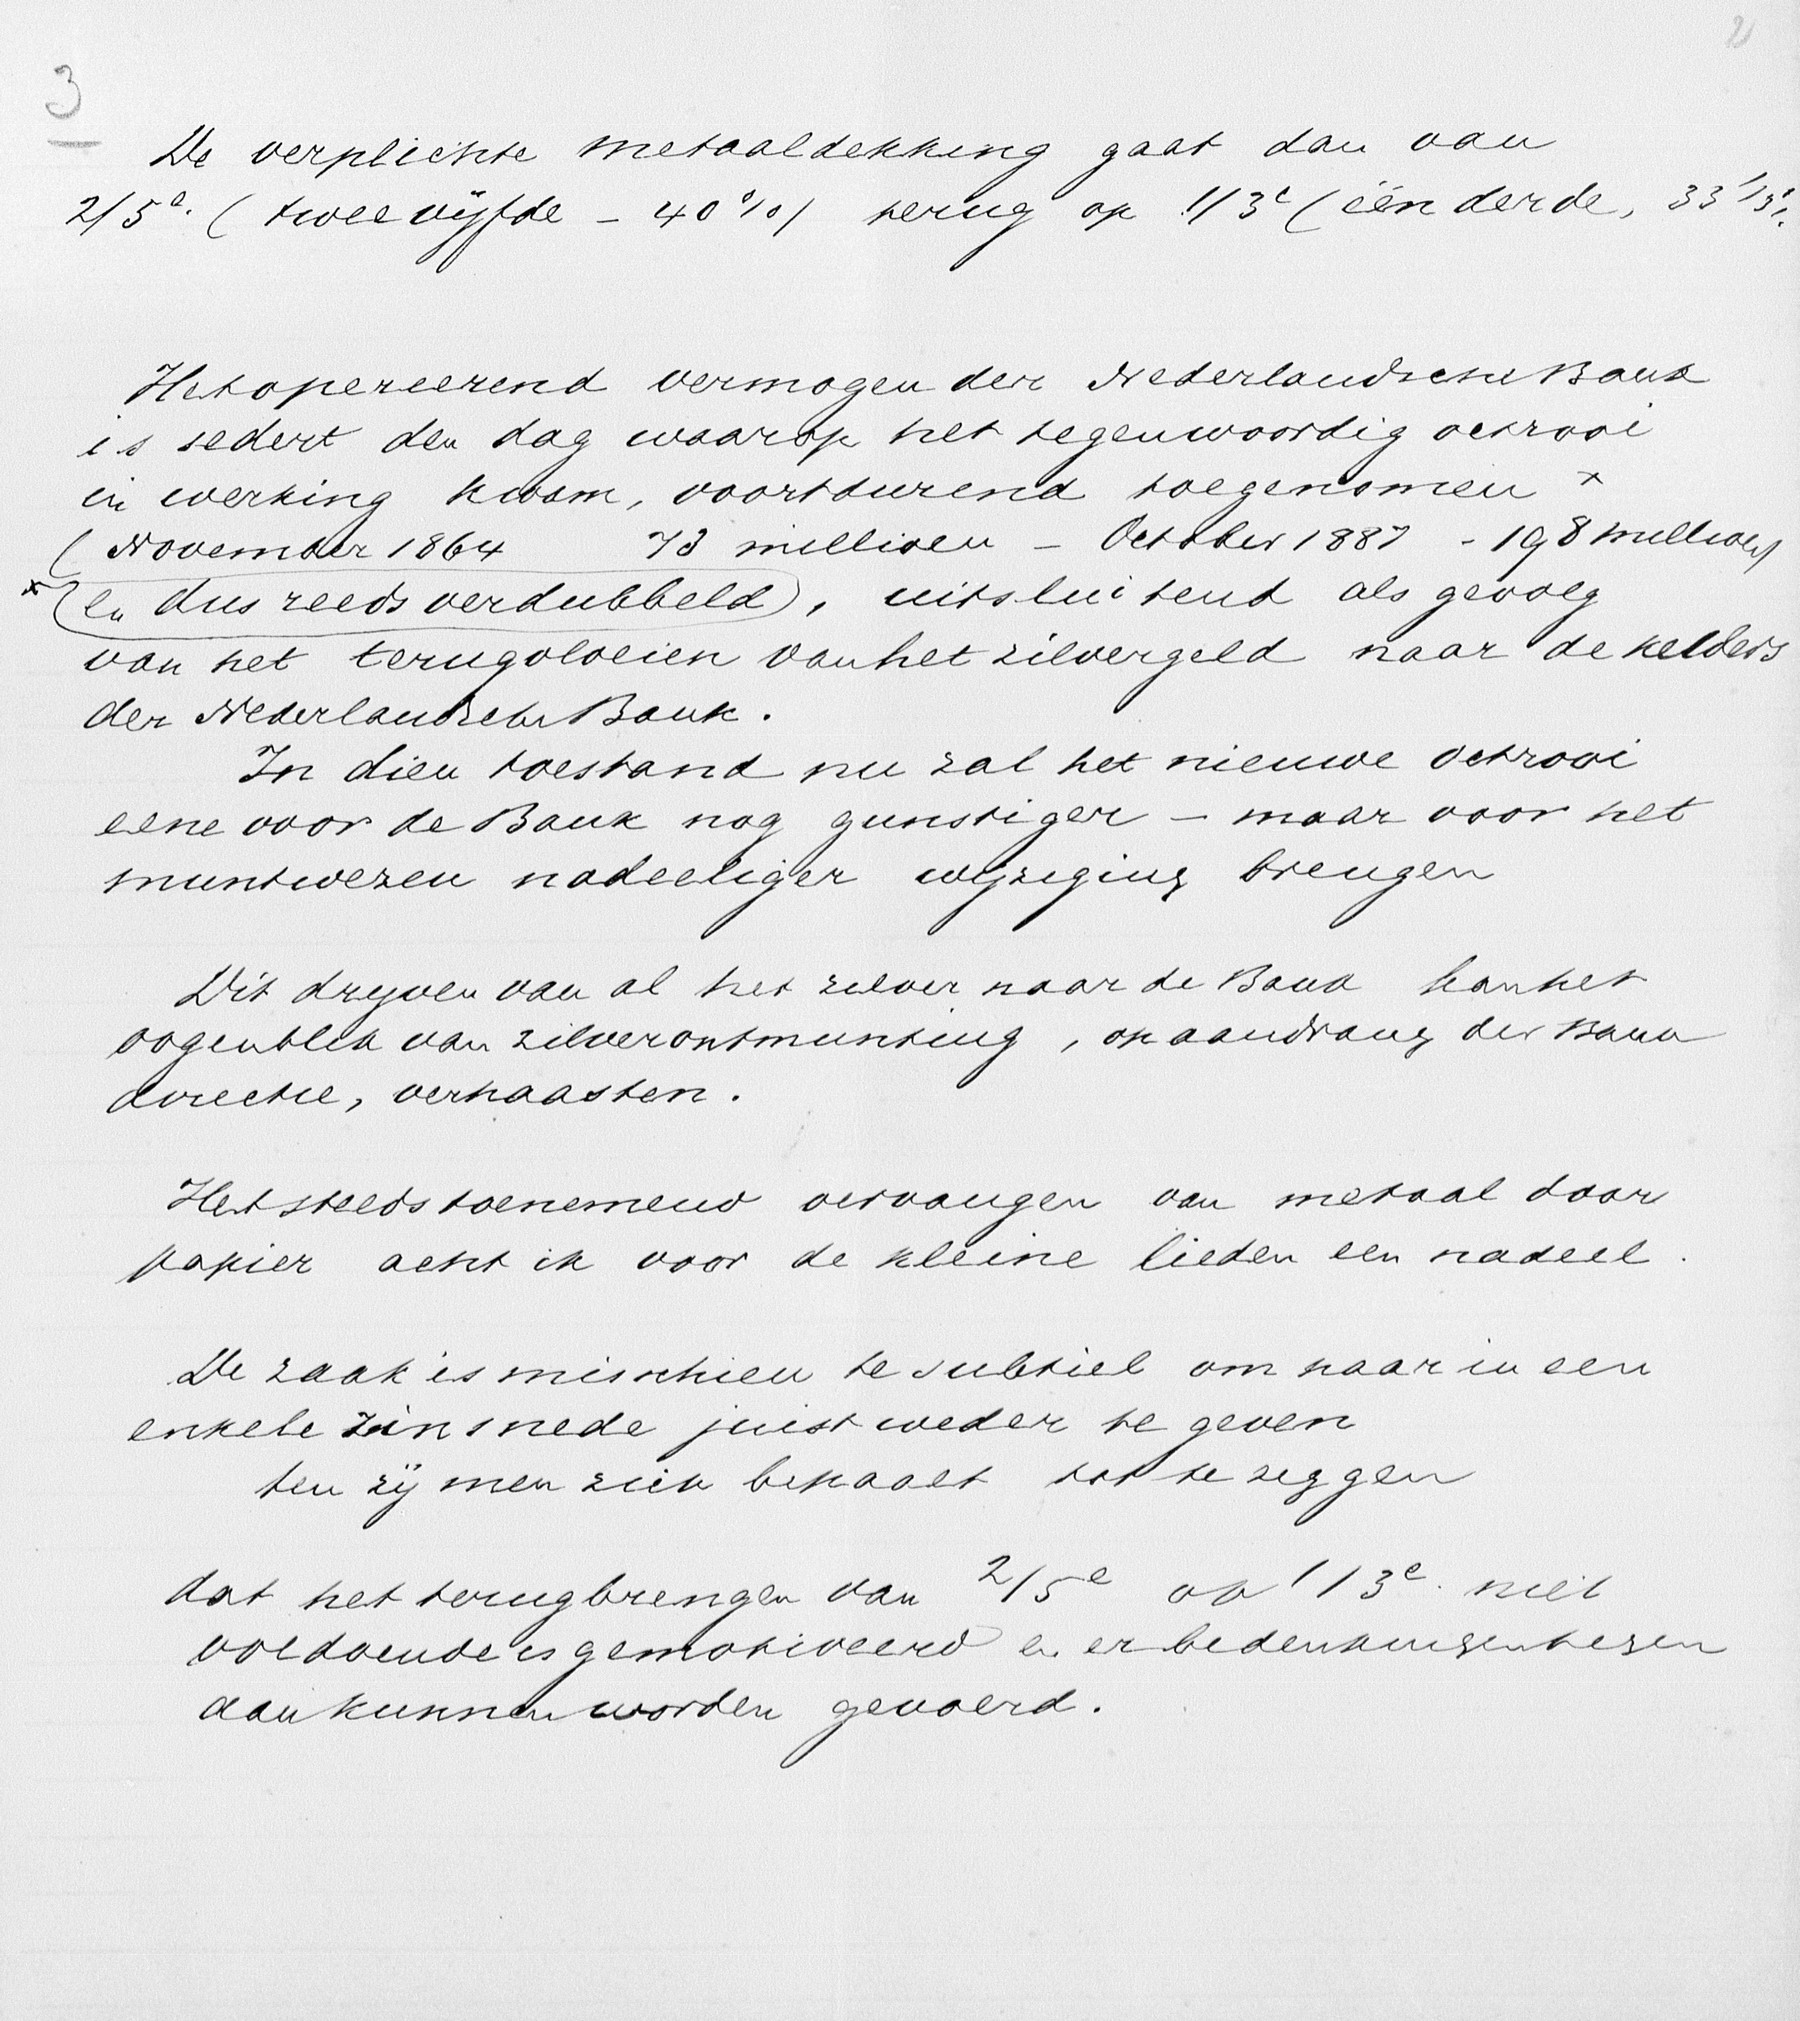 2
3
De verplichte metaaldekking gaat dan van
2/5e. (twee vijfde - 40%) terug op 1/3e (één derde, 33 1/3%.
Het opereerend vermogen der Nederlandsche Bank
is sedert den dag waarop het tegenwoordig octrooi
in werking kwam, voortdurend toegenomen x
(November 1864 73 millioen - October 1887 - 198 millioen)
x (en dus reeds verdubbeld), uitsluitend als gevolg
van het terugvloeien van het zilvergeld naar de kelders
der Nederlandsche Bank.
In dien toestand nu zal het nieuwe octrooi
eene voor de Bank nog gunstiger - maar voor het
muntwezen nadeeliger wijziging brengen
Dit drijven van al het zilver naar de Bank kan het
oogenblik van zilverontmunting, op aandrang der Bank
directie, verhaasten.
Het steeds toenemend vervangen van metaal door
papier acht ik voor de kleine lieden een nadeel.
De zaak is misschien te subtiel om haar in een
enkele zinsnede juist weder te geven
ten zij men zich bepaalt tot te zeggen
dat het terugbrengen van 2/5e op 1/3e. niet
voldoende is gemotiveerd en er bedenkingen tegen
aan kunnen worden gevoerd.